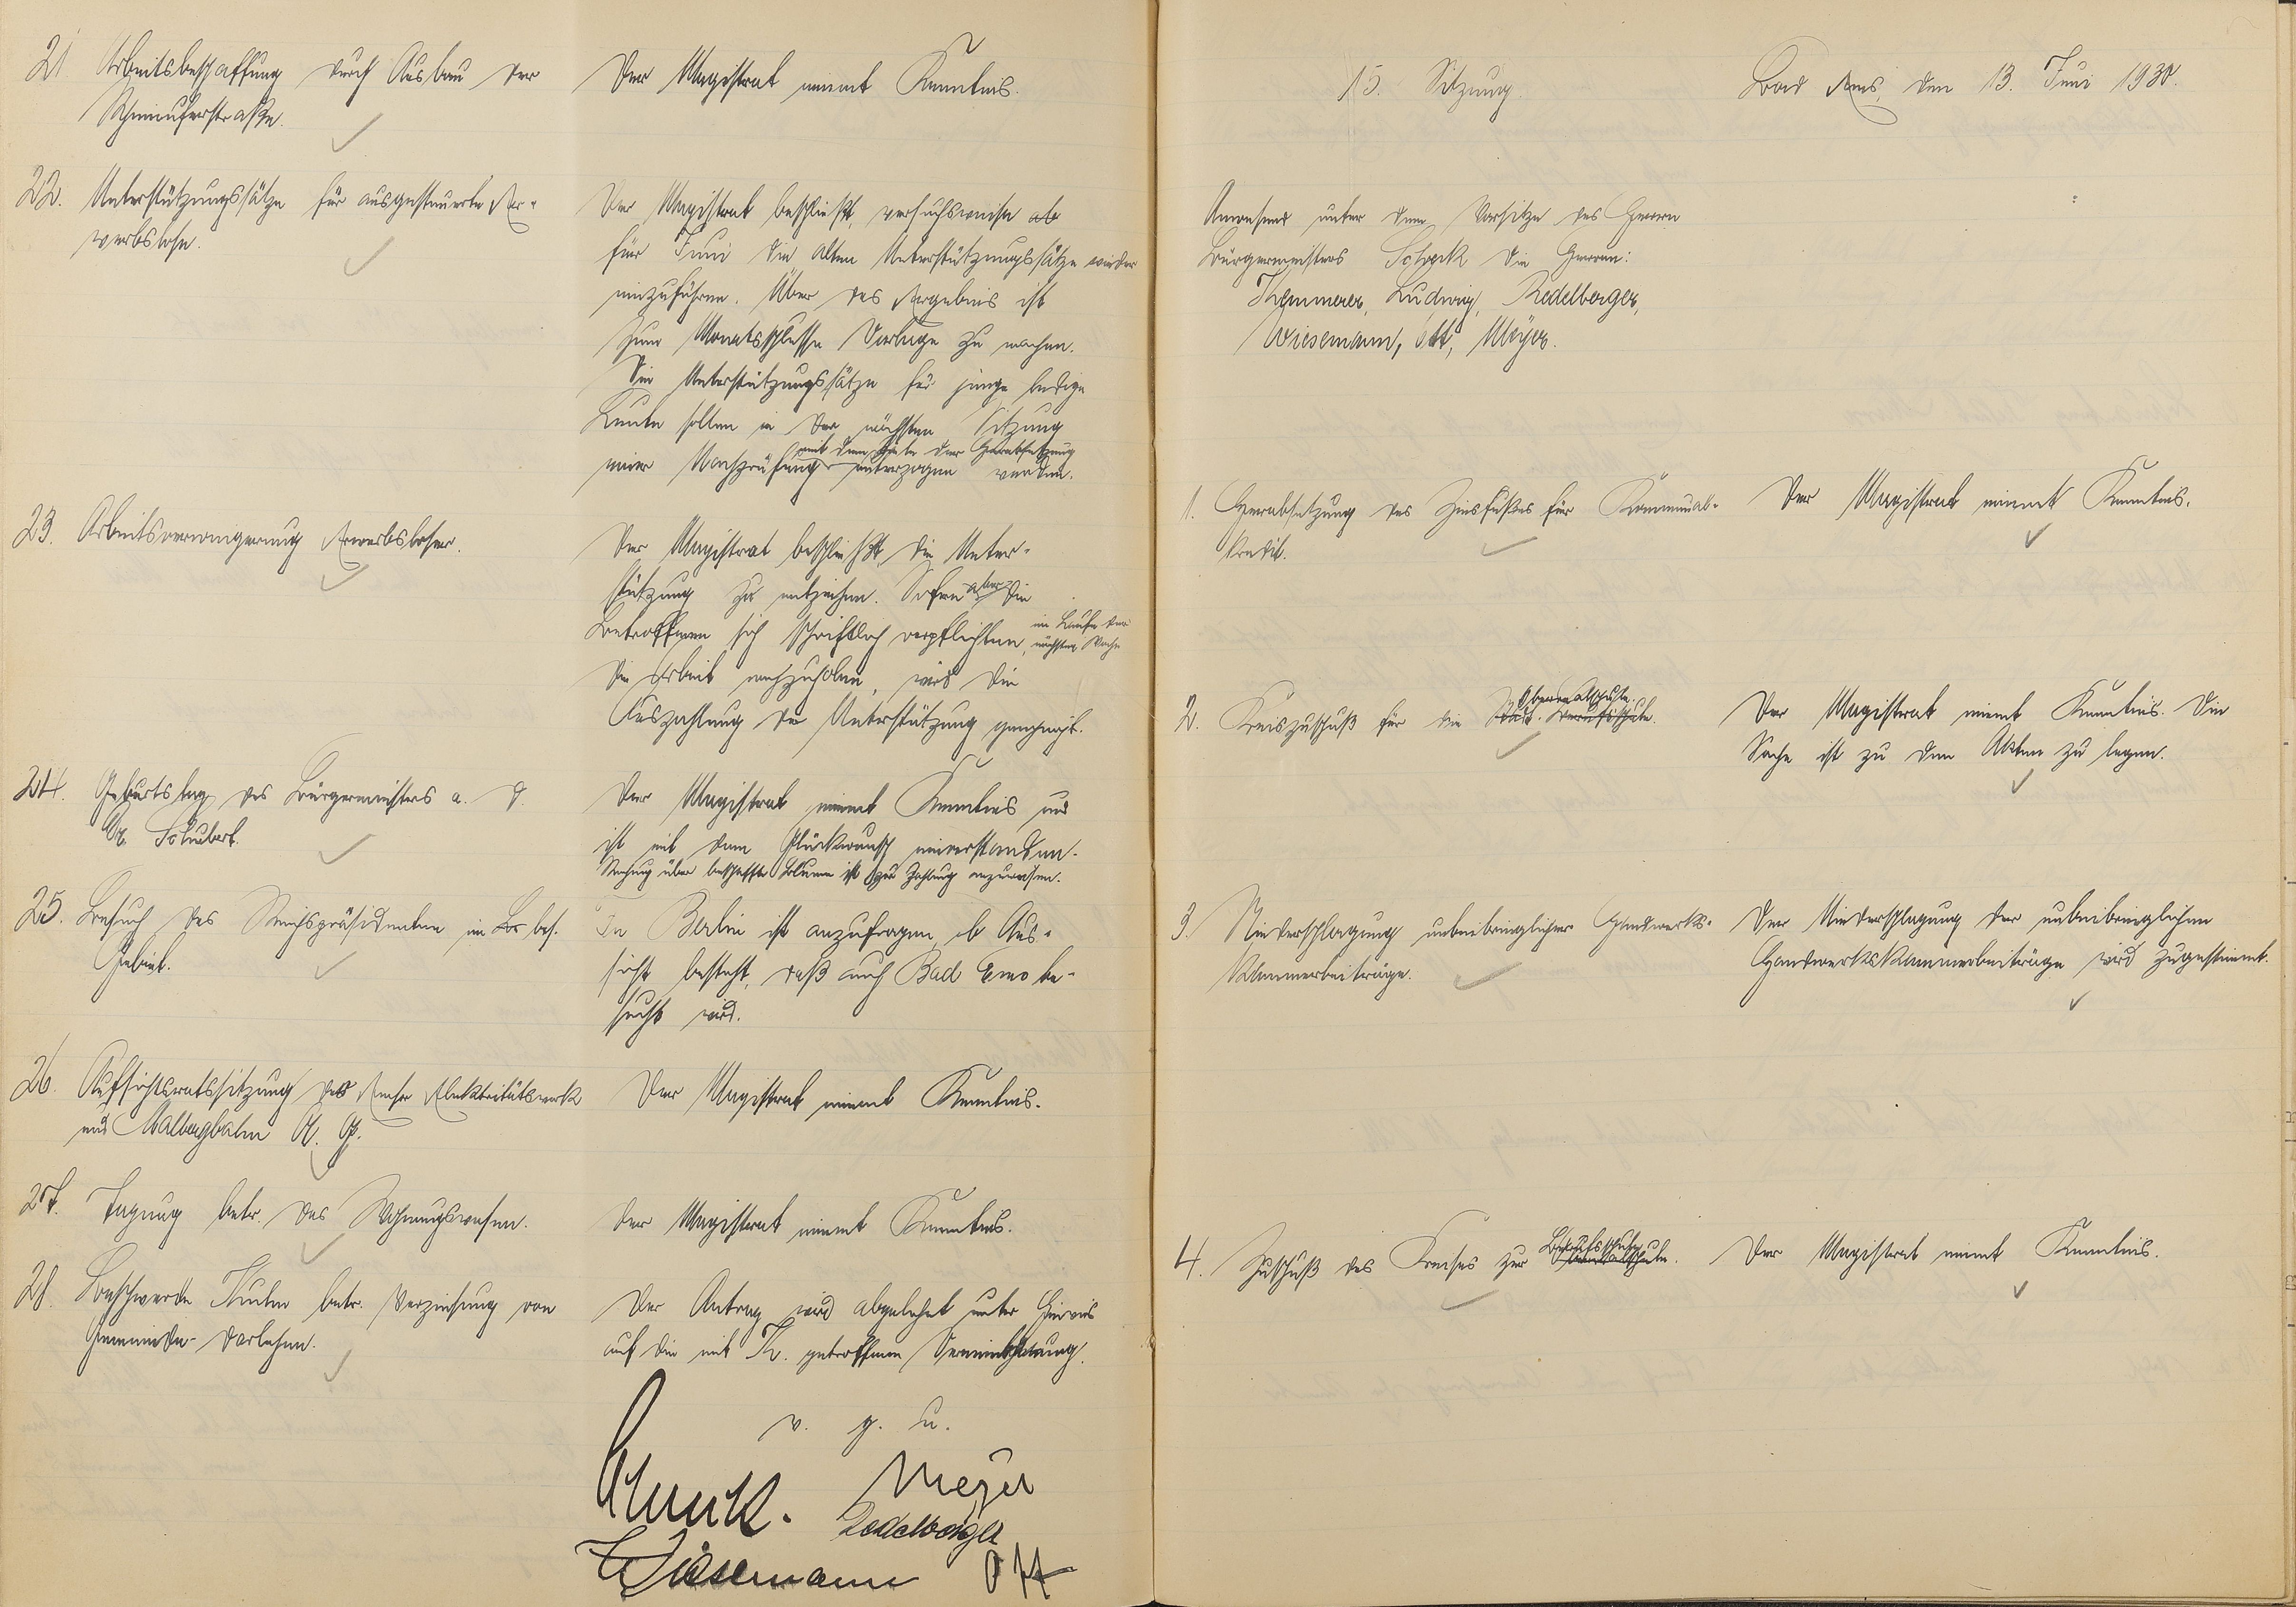 21 Arbeitsbeschaffung durch Ausbau der
Rheinuferstraße.
Der Magistrat nimmt Kenntnis.
22. Unterstützungssätze für ausgesteuerte Er-
werbslose.
Der Magistrat beschließt, versuchsweise ab
für Juni die alten Unterstützungssätze wieder
einzuführen. Über das Ergebnis ist
zum Monatsschlusse Vorlage zu machen.
Die Unterstützungssätze für junge ledige
Leute sollen in der nächsten Sitzung
mit dem Ziele der Herabsetzung
einer Nachprüfung unterzogen werden.
23. Arbeitsverweigerung Erwerbsloser.
Der Magistrat beschließt, die Unter-
stützung zu entziehen. Sofern aber die
Betroffenen sich schriftlich verpflichten, im Laufe der
nächsten Woche
die Arbeit nachzuholen, wird die
Auszahlung der Unterstützung genehmigt.
24. Geburtstag des Bürgermeisters a. D.
Dr. Schubert.
Der Magistrat nimmt Kenntnis und
ist mit dem Glückwunsch einverstanden.
Rechnung über beschaffte Blumen ist zur Zahlung anzuweisen.
25. Besuch des Reichspräsidenten im bes.
Gebiet.
In Berlin ist anzufragen, ob Aus-
sicht besteht, daß auch Bad Ems be-
sucht wird.
26. Aufsichtsratssitzung des Emser Elektrizitätswerk
und Malbergbahn A. G.
Der Magistrat nimmt Kenntnis.
27. Tagung betr. das Wohnungswesen.
Der Magistrat nimmt Kenntnis.
28. Beschwerde betr. Verzinsung von
Gemeinde-Darlehen.
Der Antrag wird abgelehnt unter Hinweis
auf die mit Th. getroffenen Vereinbarung.
v. g. u.
Schreck. Meyer
Redelberger
Wiesemann Ott
15. Sitzung. Bad Ems, den 13. Juni 1930.
Anwesend unter dem Vorsitze des Herrn
Bürgermeisters die Herren:
Kemmerer, Ludwig, Redelberger,
Wiesemann, Ott, Meyer.
1. Herabsetzung des Zinsfußes für Kommunal-
kredit.
Der Magistrat nimmt Kenntnis.
2. Kreiszuschuß für die Oberrealschule.
Städt. Berufsschule.
Der Magistrat nimmt Kenntnis. Die
Sache ist zu den Akten zu legen.
3. Niederschlagung unbeibringlicher Handwerks-
kammerbeiträge.
Der Niederschlagung der unbeibringlichen
Handwerkskammerbeiträge wird zugestimmt.
4. Zuschuß des Kreises zur Berufsschule.
Der Magistrat nimmt Kenntnis.